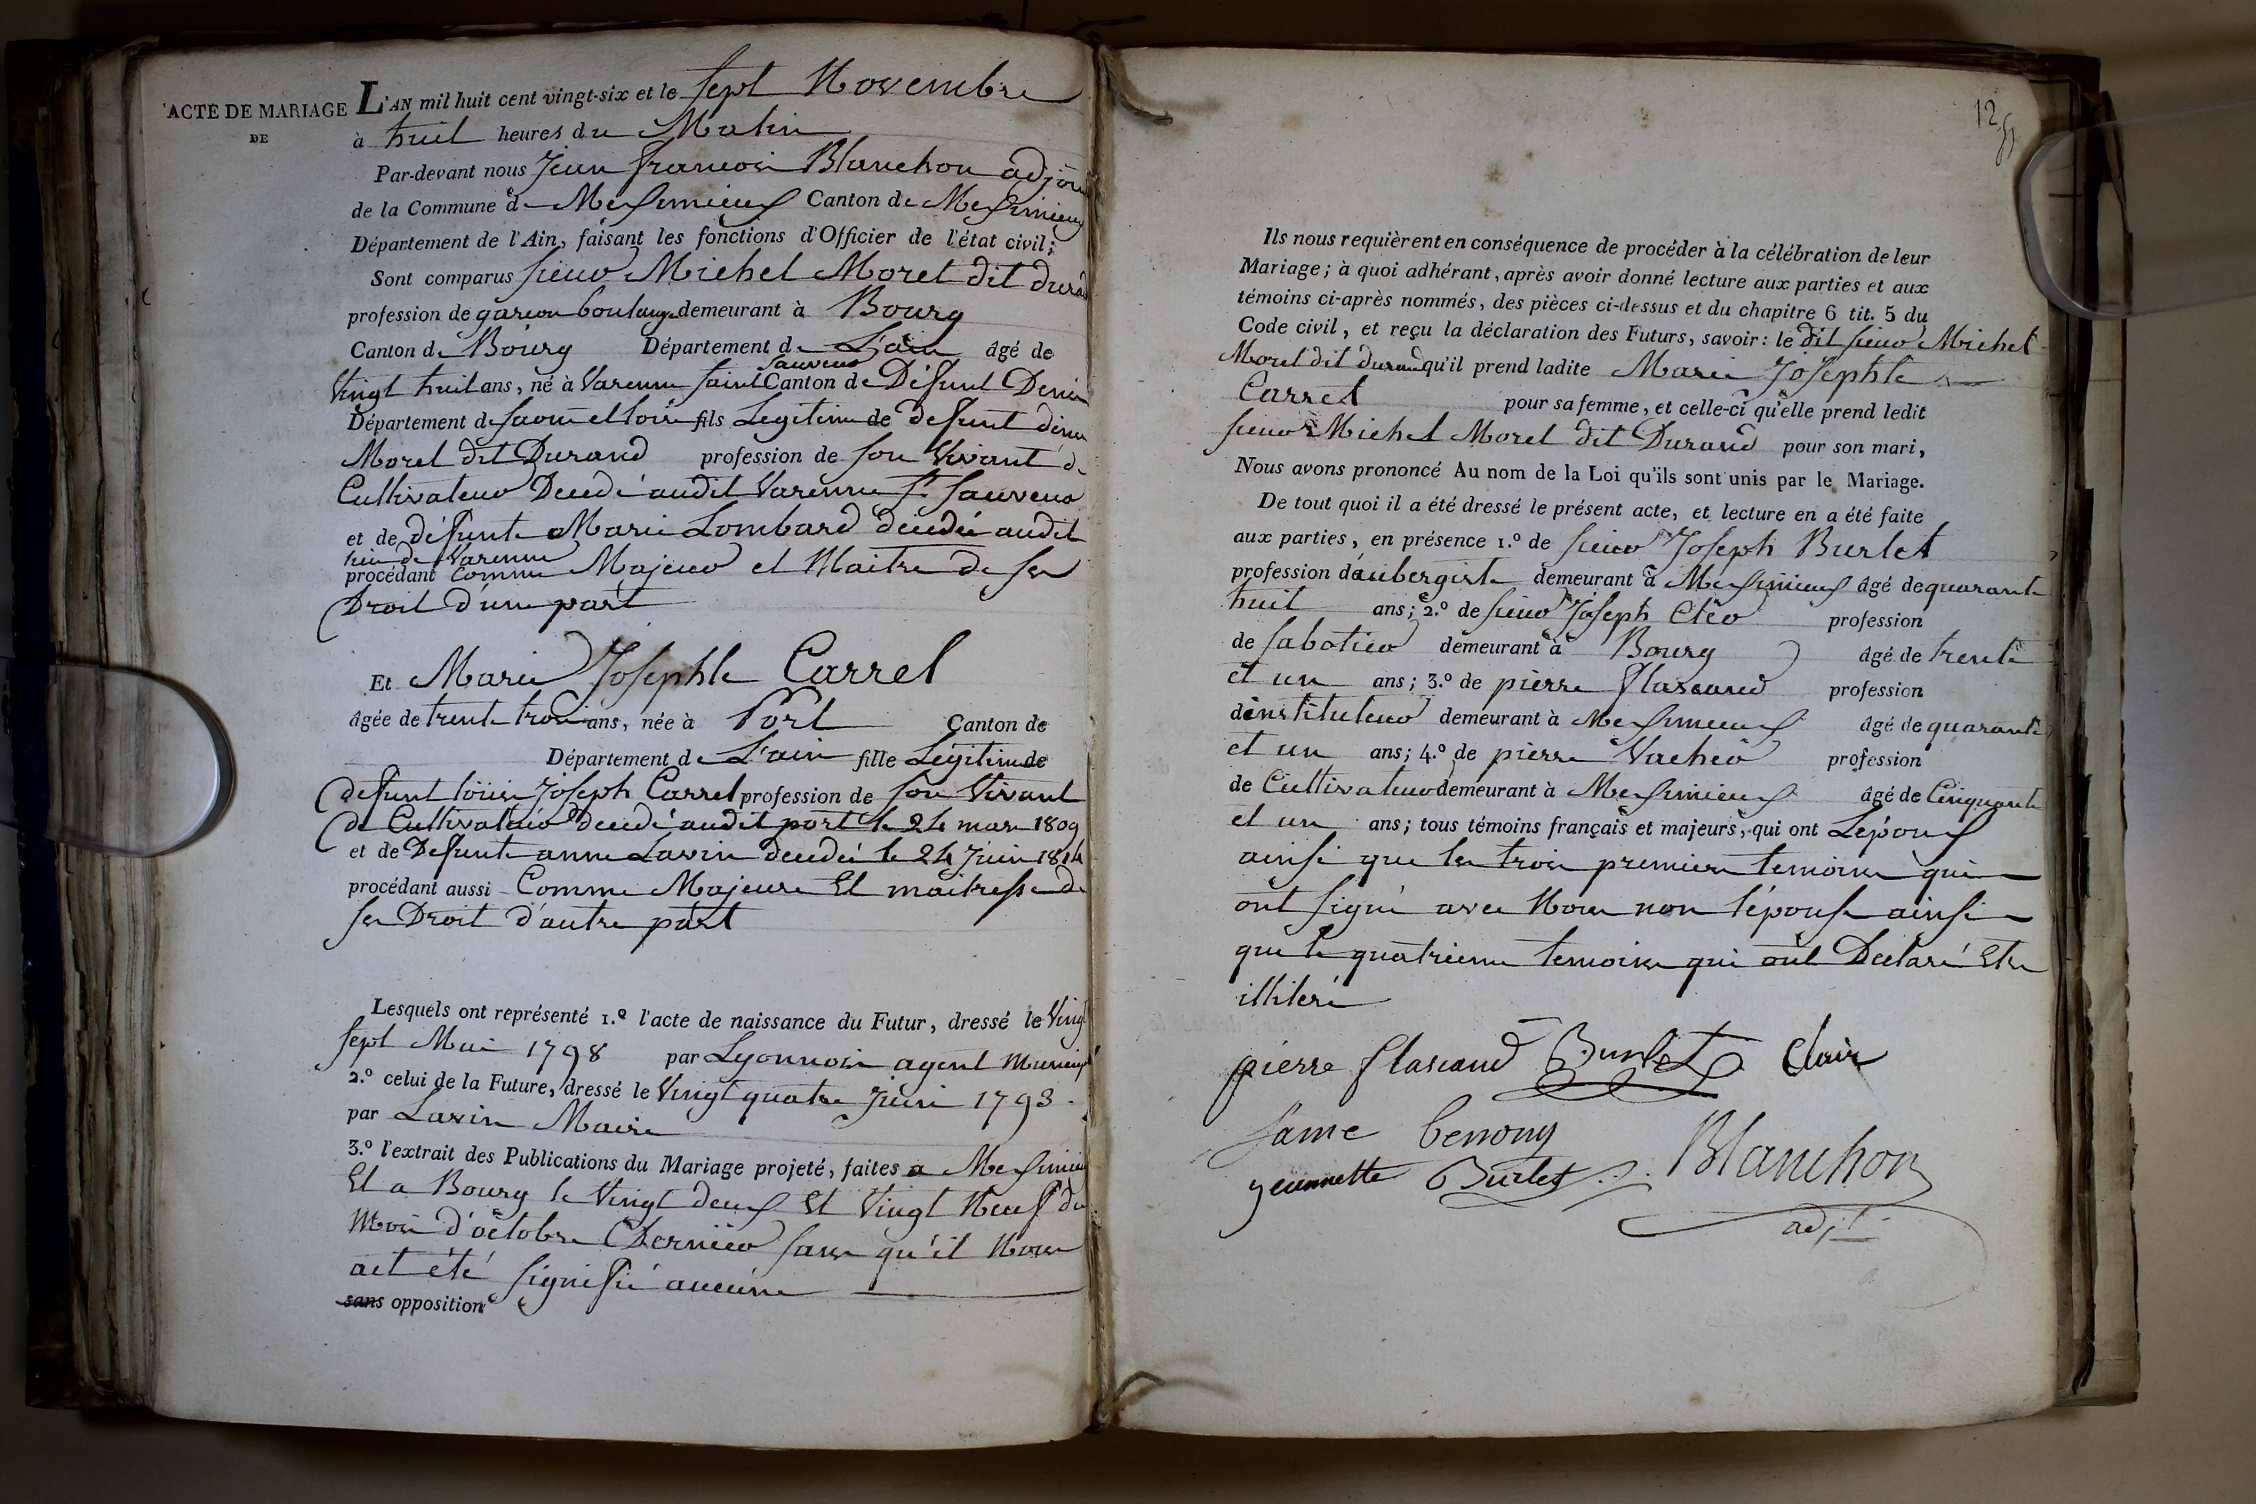 ACTE DE MARIAGE
DE
L'AN mil huit cent vingt-six et le sept Novembre
à huit heures du Matin
Par-devant nous Jean francois Blanchon adjoin
de la Commune d Meximieux Canton de Meximieux
Département de l'Ain, faisant les fonctions d'Officier de l'état civil;
Sont comparus sieur Michel Morel dit durand
profession de garcon boulang demeurant à Bourg
Canton de Bourg Département de L'ain âgé de
Sauveur
Vingt huit ans, né à Varenne saint Canton de Défunt Denis
Département de saone et loire fils Legitime de defunt denis
Morel dit Durand profession de son Vivant de
Cultivateur Décédé audit Varenne St sauveur
et de défunte Marie Lombard décédée audit
lieu de Varenne
procédant Comme Majeur et Maitre de ses
Droit d'une part
Et Marie Josephte Carrel
âgée de trente trois ans, née à Port Canton de
Département de L'ain fille Légitime de
defunt louis Joseph Carrel profession de son Vivant
de Cultivateur décédé audit port le 24 mars 1809
et de Defunte anne Lavin décédée le 24 Juin 1814
procédant aussi Comme Majeure Et maitresse de
ses Droit d'autre part
Lesquels ont représenté 1.º l'acte de naissance du Futur, dressé le Vingt
sept Mai 1798 par Lyonnois agent Municipl
2.º celui de la Future, dressé le Vingt quatre Juin 1793.
par Lavin Maire
3.º l'extrait des Publications du Mariage projeté, faites a Meximieux
Et a Bourg le Vingt deux Et Vingt Neuf du
Mois d'octobre Dernier sans qu'il Nous
ait été signifié aucune
sans opposition
12
Ils nous requièrent en conséquence de procéder à la célébration de leur
Mariage; à quoi adhérant, après avoir donné lecture aux parties et aux
témoins ci-après nommés, des pièces ci-dessus et du chapitre 6 tit. 5 du
Code civil, et reçu la déclaration des Futurs, savoir: le dit sieur Michel
Morel dit durand qu'il prend ladite Marie Josephte
Carrel pour sa femme, et celle-ci qu'elle prend ledit
sieur Michel Morel dit Durand pour son mari,
Nous avons prononcé Au nom de la Loi qu'ils sont unis par le Mariage.
De tout quoi il a été dressé le présent acte, et lecture en a été faite
aux parties, en présence 1.º de sieur Joseph Burlet
profession d'aubergiste demeurant à Meximieux âgé de quarante
huit ans; 2.º de sieur Joseph Cler profession
de sabotier demeurant à Bourg âgé de trente
et un ans; 3.º de pierre flascaud profession
dinstituteur demeurant à Meximieux âgé de quarante
et un ans; 4.º de pierre Vacher profession
de Cultivateur demeurant à Meximieux âgé de Cinquante
et un ans; tous témoins français et majeurs, qui ont L'époux
ainsi que les trois premiers temoins qui
ont signé avec Nous non l'épouse ainsi
que le quatrieme temoins qui ont Declaré Etre
illiteré
pierre flascaud Burlet Clair
Benony
jeannette Burlet Blanchon
adjt